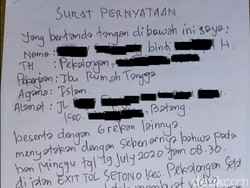 SURAT PERNYATAAN
Yang bertanda tangan dibawah ini saya:
Nama: binti H.
TH : Pekalongan,
Pekerjaan: Ibu Rumah Tangga
Agama: Islam
Alamat: Jl
Kec. Batang
beserta dengan 6 rekan lainnya.
menyatakan dengan sebenarnya bahwa pada
hari Minggu tgl 19 July 2020 jam 08.30.
di jalan EXIT TOL SETONO Kec. Pekalongan
detik